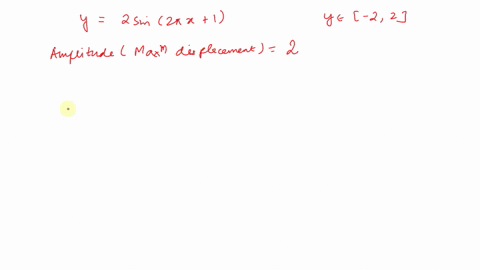 y = 2 sin (2πx + 1) y ∈ [-2, 2]
Amplitude ( Maxᵐ displacement) = 2